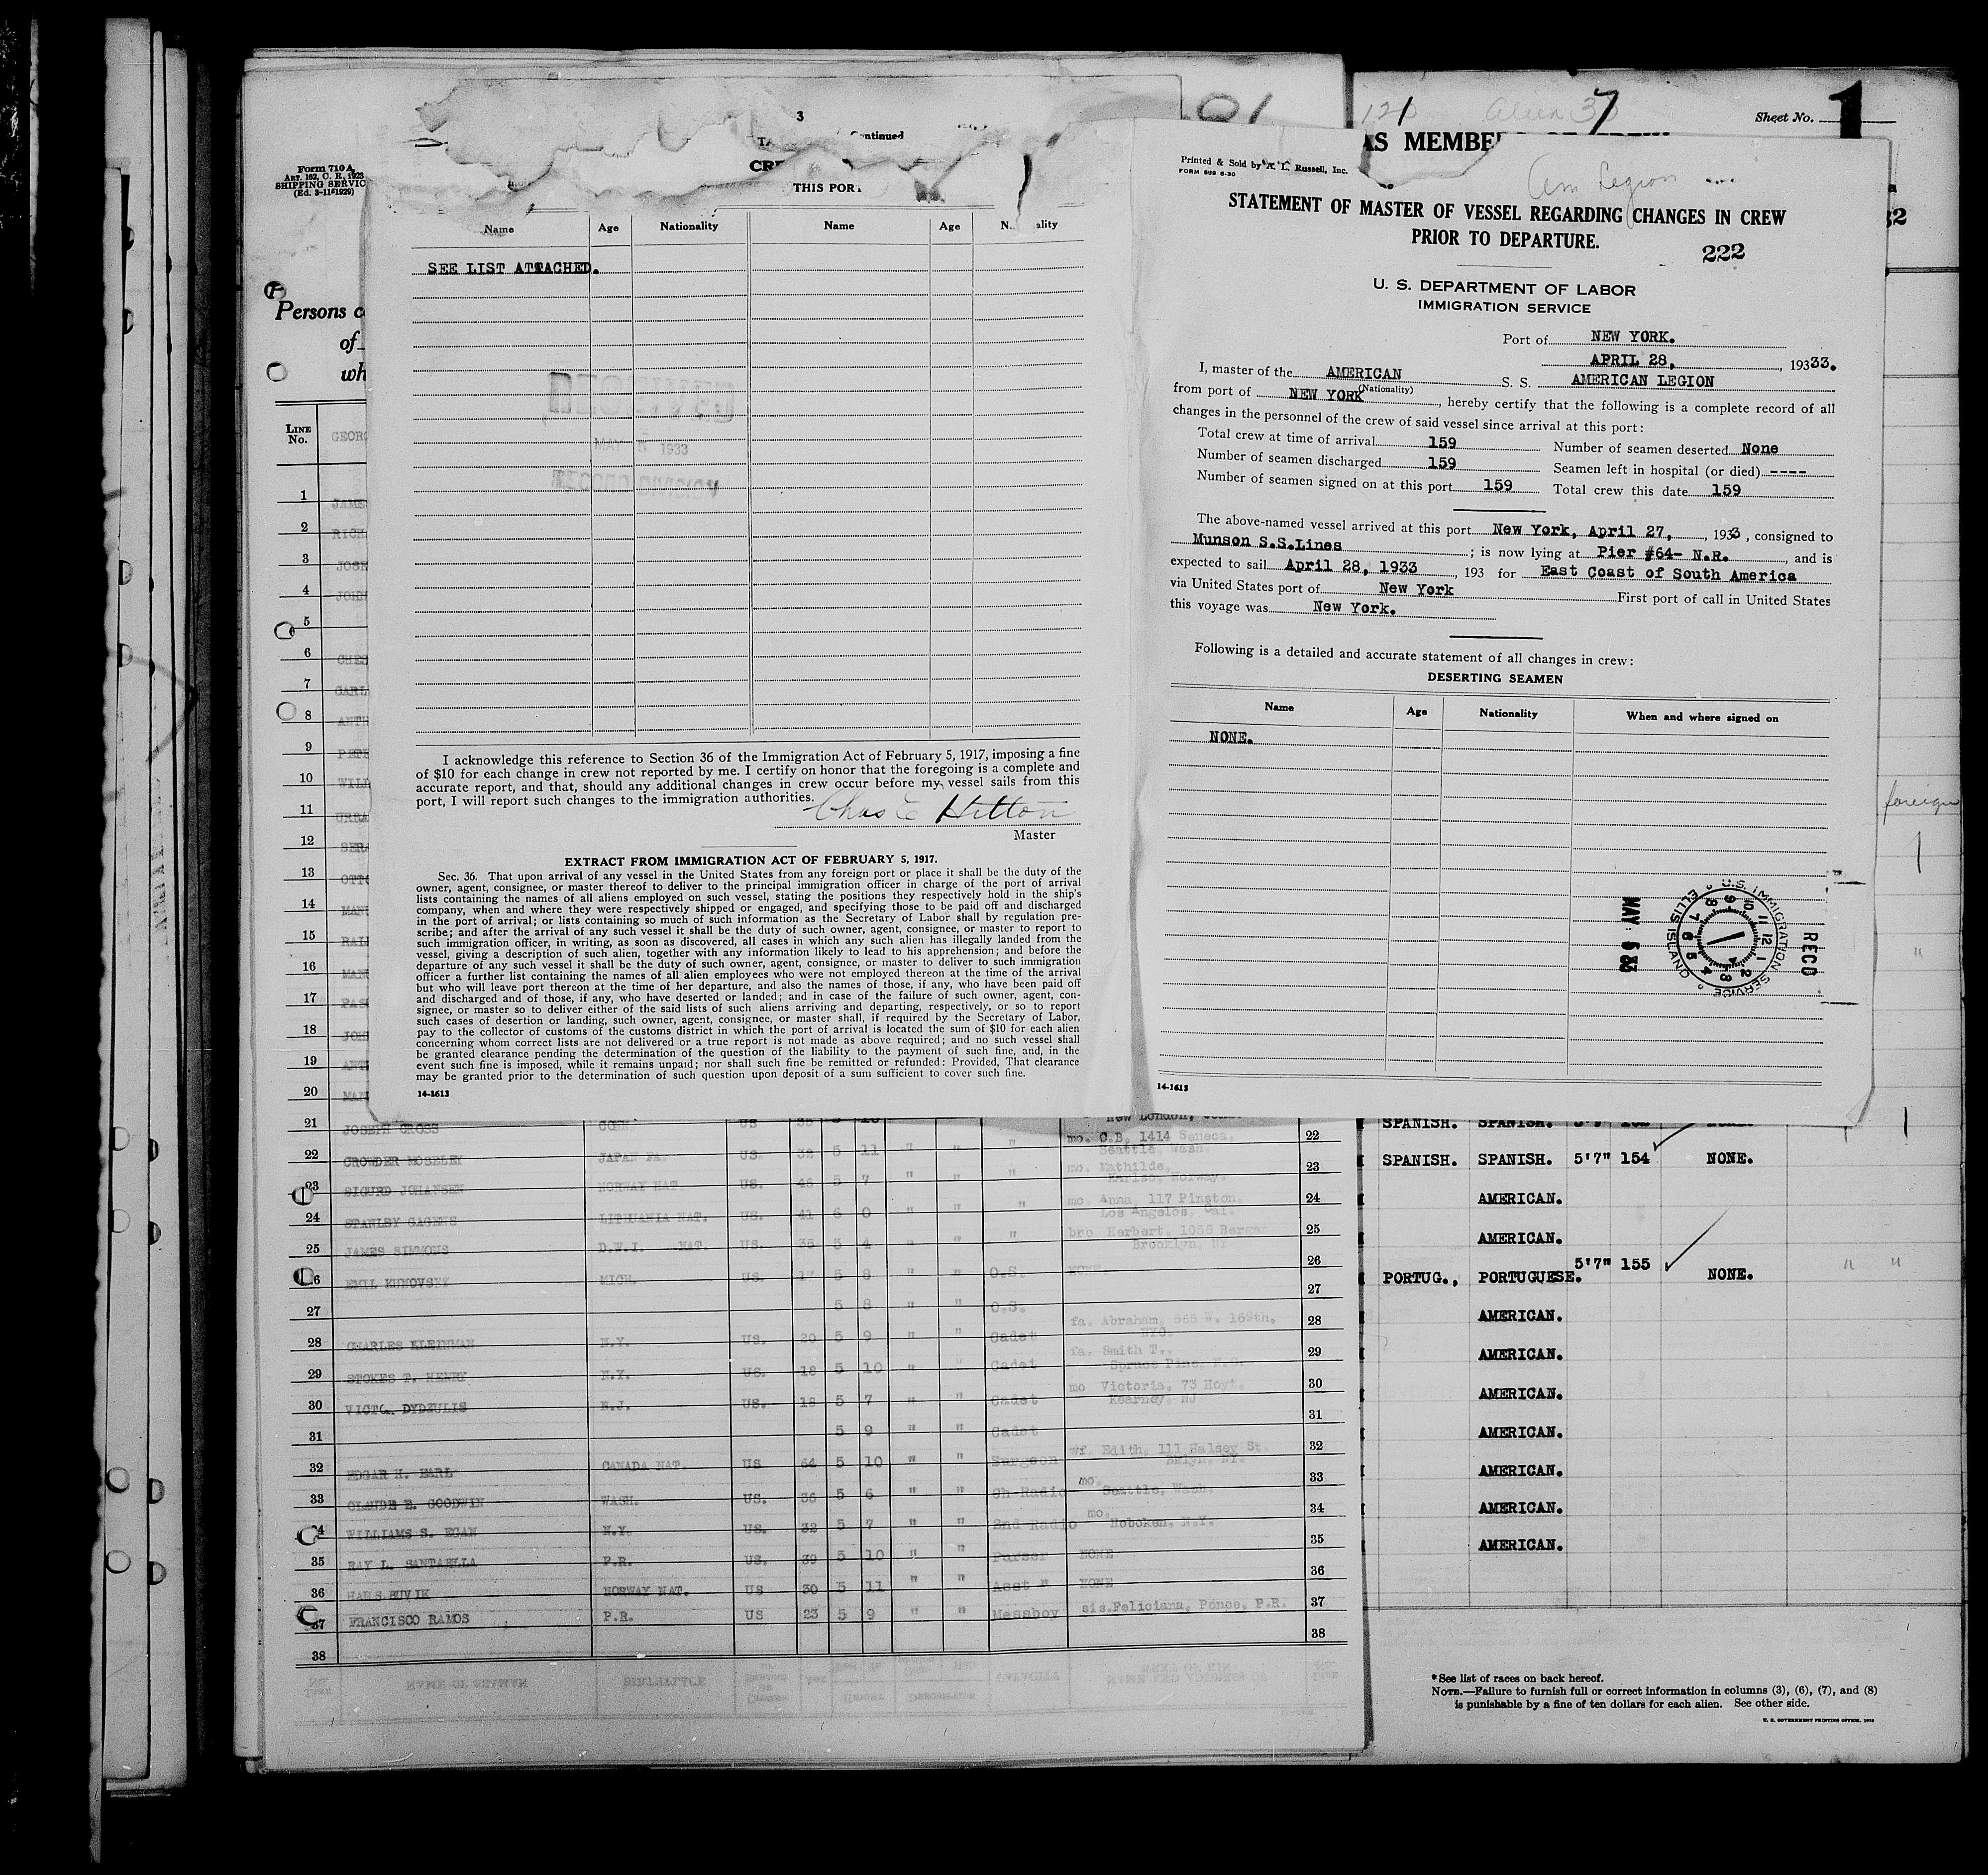 3
Continued
CRE
THIS PORT
Form 710 A
ART. 162, C. R., 1923
SHIPPING SERVIC
Persons c
of
wh
LINE No.
GEORG
1 JAMES
2 RICH
3 JOSE
4 JOHN
5
6 CHES
7 CARL
8 ANTH
9 PETE
10 WILL
11 URBA
12 SERA
13 OTTO
14 MANU
15
16 MANU
17 PASC
18 JOHN
19 ANTH
20
Name Age Nationality Name Age Nationality
SEE LIST ATTACHED.
MAY 5 1933
RECORD DIVISION
I acknowledge this reference to Section 36 of the Immigration Act of February 5, 1917, imposing a fine
of $10 for each change in crew not reported by me. I certify on honor that the foregoing is a complete and
accurate report, and that, should any additional changes in crew occur before my vessel sails from this
port, I will report such changes to the immigration authorities.
Chas E Hilton
Master
EXTRACT FROM IMMIGRATION ACT OF FEBRUARY 5, 1917.
Sec. 36. That upon arrival of any vessel in the United States from any foreign port or place it shall be the duty of the
owner, agent, consignee, or master thereof to deliver to the principal immigration officer in charge of the port of arrival
lists containing the names of all aliens employed on such vessel, stating the positions they respectively hold in the ship's
company, when and where they were respectively shipped or engaged, and specifying those to be paid off and discharged
in the port of arrival; or lists containing so much of such information as the Secretary of Labor shall by regulation pre-
scribe; and after the arrival of any such vessel it shall be the duty of such owner, agent, consignee, or master to report to
such immigration officer, in writing, as soon as discovered, all cases in which any such alien has illegally landed from the
vessel, giving a description of such alien, together with any information likely to lead to his apprehension; and before the
departure of any such vessel it shall be the duty of such owner, agent, consignee, or master to deliver to such immigration
officer a further list containing the names of all alien employees who were not employed thereon at the time of the arrival
but who will leave port thereon at the time of her departure, and also the names of those, if any, who have been paid off
and discharged and of those, if any, who have deserted or landed; and in case of the failure of such owner, agent, con-
signee, or master so to deliver either of the said lists of such aliens arriving and departing, respectively, or so to report
such cases of desertion or landing, such owner, agent, consignee, or master shall, if required by the Secretary of Labor,
pay to the collector of customs of the customs district in which the port of arrival is located the sum of $10 for each alien
concerning whom correct lists are not delivered or a true report is not made as above required; and no such vessel shall
be granted clearance pending the determination of the question of the liability to the payment of such fine, and, in the
event such fine is imposed, while it remains unpaid; nor shall such fine be remitted or refunded: Provided, That clearance
may be granted prior to the determination of such question upon deposit of a sum sufficient to cover such fine.
14-1613
Sheet No. 1
AS MEMBE
Printed & Sold by A. L. Russell, Inc.
FORM 689 8-30
Am Legion
STATEMENT OF MASTER OF VESSEL REGARDING CHANGES IN CREW
PRIOR TO DEPARTURE.
222
U. S. DEPARTMENT OF LABOR
IMMIGRATION SERVICE
Port of NEW YORK.
APRIL 28, , 19333.
I, master of the AMERICAN S. S. AMERICAN LEGION
(Nationality)
from port of NEW YORK, hereby certify that the following is a complete record of all
changes in the personnel of the crew of said vessel since arrival at this port:
Total crew at time of arrival 159 Number of seamen deserted None
Number of seamen discharged 159 Seamen left in hospital (or died) ----
Number of seamen signed on at this port 159 Total crew this date 159
The above-named vessel arrived at this port New York, April 27, , 1933, consigned to
Munson S.S.Lines ; is now lying at Pier #64- N.R. , and is
expected to sail April 28, 1933 , 193 for East Coast of South America
via United States port of New York First port of call in United States
this voyage was New York.
Following is a detailed and accurate statement of all changes in crew:
DESERTING SEAMEN
Name Age Nationality When and where signed on
NONE.
RECD
U.S. IMMIGRATION SERVICE ELLIS ISLAND
MAY 5 33
14-1613
foreign
21 JOSEPH GROSS CONN US New London,
22 CROWDER MOSELEY JAPAN PA. US. 32 5 11 " " " mo. C.B. 1414 Seneca, Seattle, Wash. 22
23 SIGURD JOHANSEN NORWAY NAT. US. 46 5 7 " " " mo. Mathilde, Norway. 23
24 STANLEY GAGENS LITHUANIA NAT. US. 41 6 0 " " " mo. Anna, 117 Pinston. Los Angelos, Cal. 24
25 JAMES SIMMONS D.W.I. NAT. US. 35 5 4 " " " bro Herbert, 1056 Bergen Brooklyn, NY 25
26 EMIL KUNOVSKY MICH. US. 17 5 8 " " O.S. NONE 26
27 5 8 " " O.S. 27
28 CHARLES KLEINMAN N.Y. US. 20 5 9 " " Cadet fa. Abraham, 565 W. 169th, NYC. 28
29 STOKES T. HENRY N.Y. US. 18 5 10 " " Cadet fa. Smith T., Spruce Pine, N.C. 29
30 VICTOR DYDZULIS N.J. US. 18 5 7 " " Cadet mo Victoria, 73 Hoyt, Kearney, NJ 30
31 5 9 " " Cadet 31
32 EDGAR H. EARL CANADA NAT. US 64 5 10 " " Surgeon wf. Edith, 111 Halsey St. Bklyn, NY. 32
33 CLAUDE B. GOODWIN WASH. US. 36 5 6 " " Ch Radio mo. Seattle, Wash. 33
34 WILLIAMS S. EGAN N.Y. US. 32 5 7 " " 2nd Radio mo. Hoboken, N.Y. 34
35 RAY L. SANTAELLA P.R. US. 39 5 10 " " Purser NONE 35
36 HANS BUVIK NORWAY NAT. US 30 5 11 " " Asst " NONE 36
37 FRANCISCO RAMOS P.R. US 23 5 9 " " Messboy sis.Feliciana, Ponce, P.R. 37
38 38
SPANISH. SPANISH.
SPANISH. SPANISH. 5'7" 154 NONE.
AMERICAN.
AMERICAN.
PORTUG., PORTUGUESE. 5'7" 155 NONE.
AMERICAN.
AMERICAN.
AMERICAN.
AMERICAN.
AMERICAN.
AMERICAN.
AMERICAN.
*See list of races on back hereof.
NOTE.—Failure to furnish full or correct information in columns (3), (6), (7), and (8)
is punishable by a fine of ten dollars for each alien. See other side.
U. S. GOVERNMENT PRINTING OFFICE